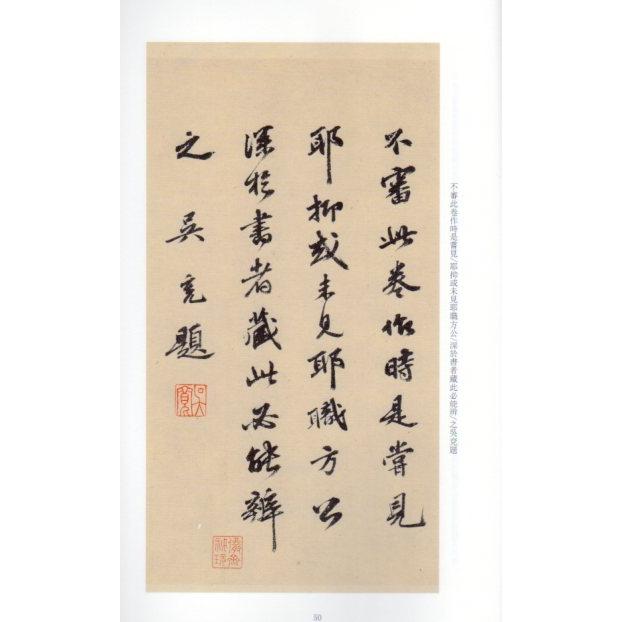 不審此卷作時是嘗見/耶抑或未見耶職方公/深於書者藏此必能辨/之吳兗題
不審此卷作時是嘗見
耶抑或未見耶職方公
深於書者藏此必能辨
之吳兗題
50